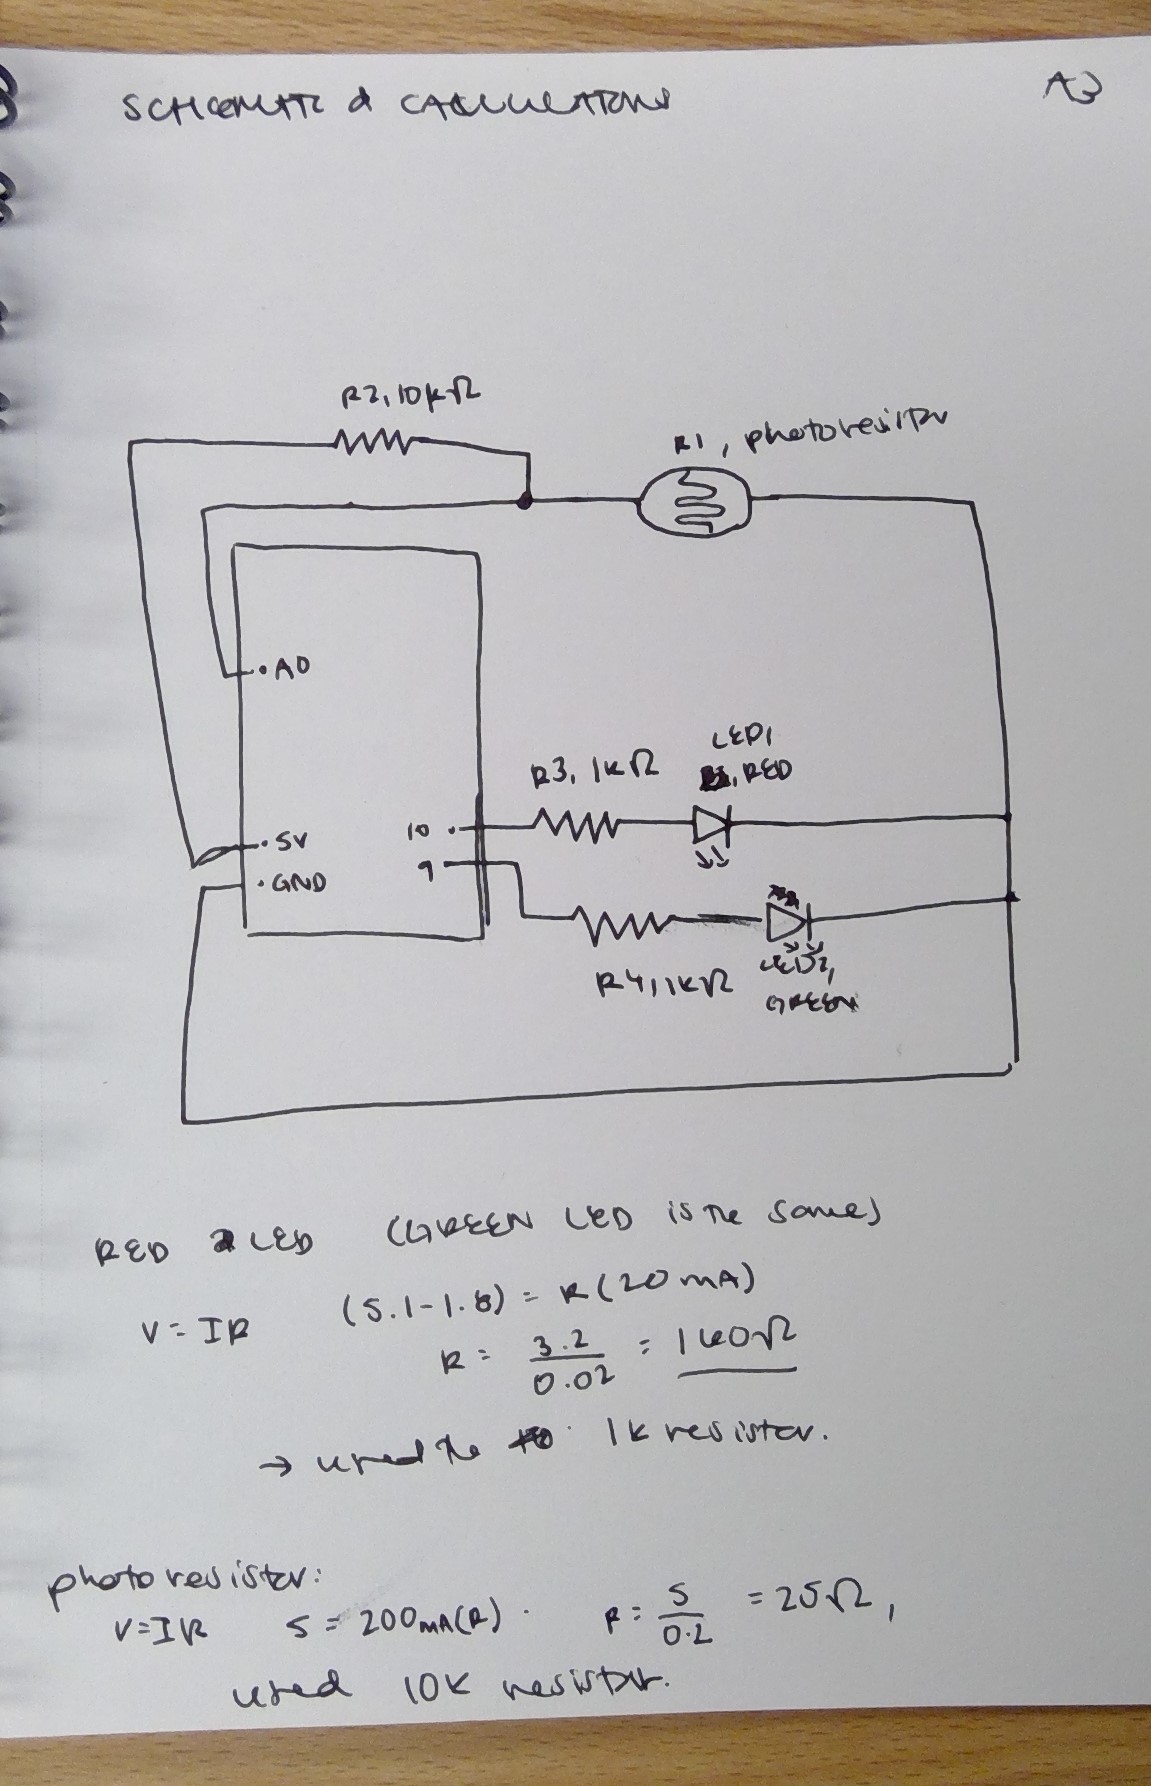 SCHEMATIC & CALCULATIONS
A3
R2, 10kΩ
R1, photoresistor
A0
LED1
, RED
R3, 1kΩ
10
5V
9
GND
R4, 1kΩ
LED2,
GREEN
RED LED (GREEN LED is the same)
V=IR (5.1-1.8) = R(20mA)
R = 3.2 / 0.02 = 160Ω
→ used the 1k resistor.
photoresistor:
V=IR 5 = 200mA(R). R = 5 / 0.2 = 25Ω,
used 10K resistor.